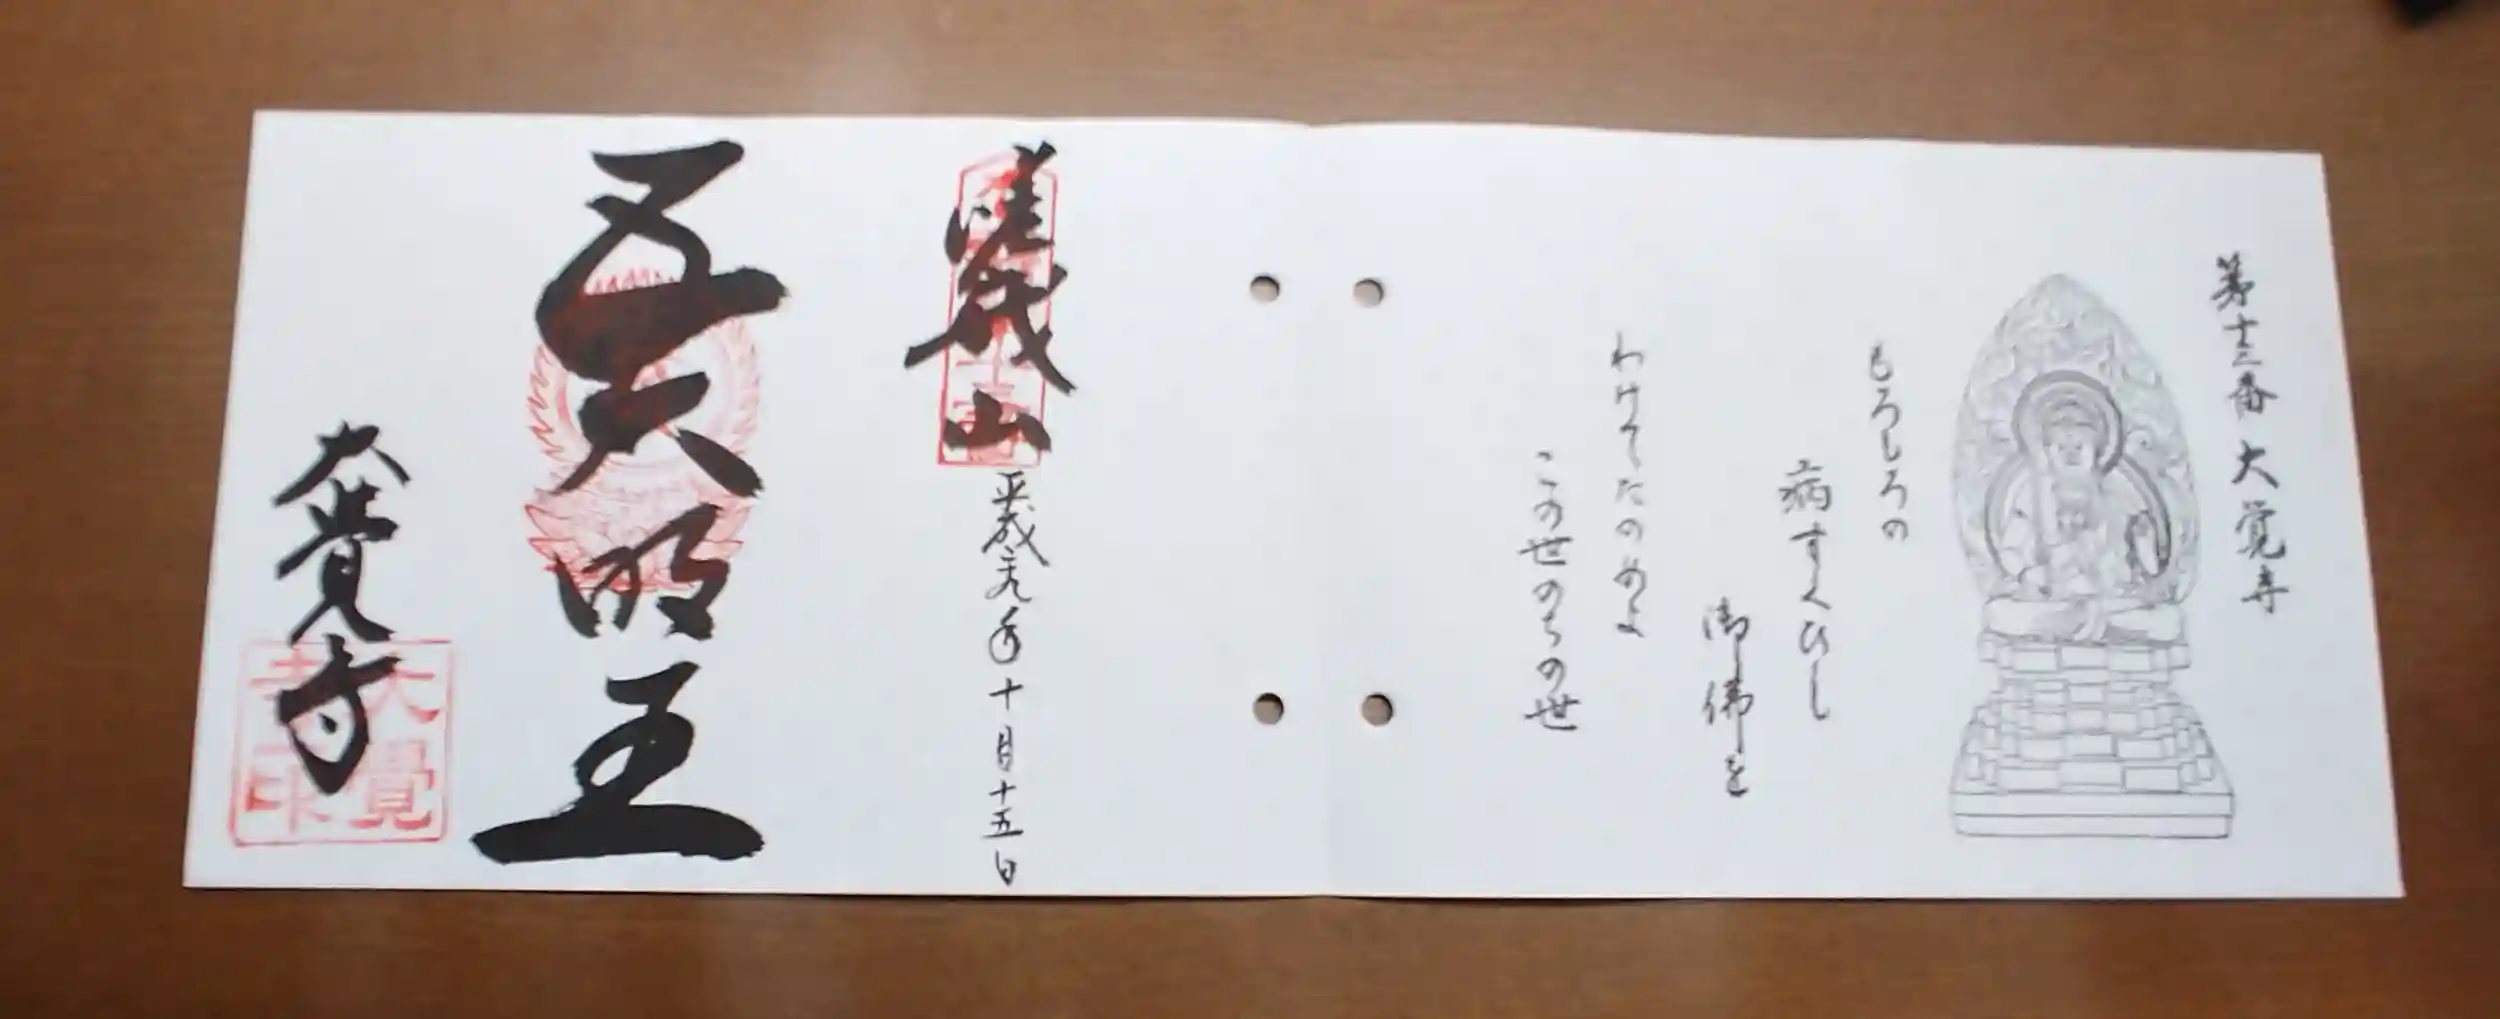 第十三番 大覚寺
もろもろの
病すくひし
御佛を
わけてたのめよ
この世のちの世
嵯峨山
平成廿九年十月十五日
五大明王
大覺寺
大覺寺印